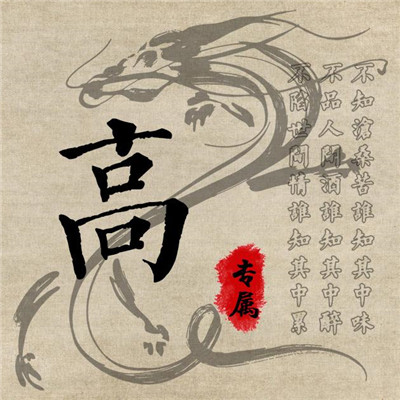 高
专属
不知滄桑苦誰知其中味
不品人間酒誰知其中醉
不陷世間情誰知其中累